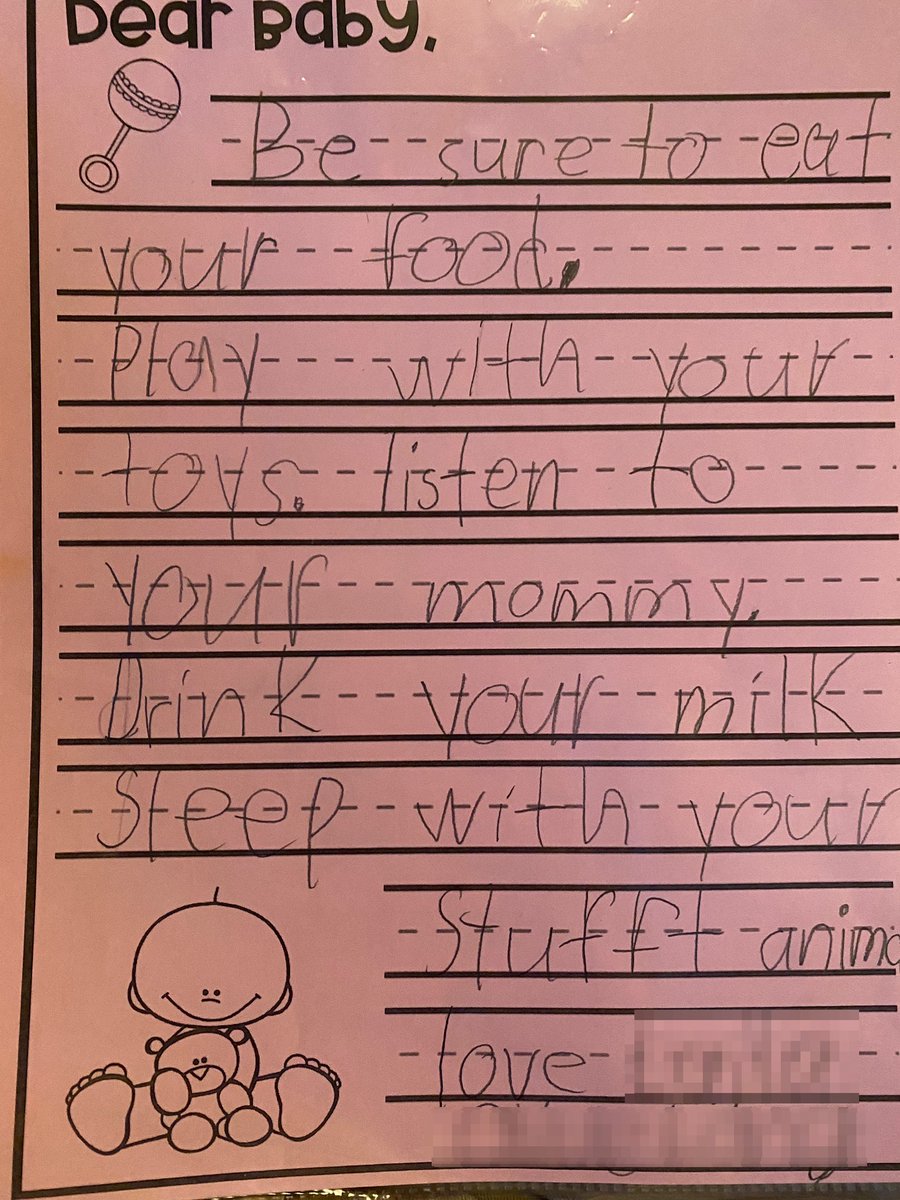 Dear Baby,
Be sure to eat
your food.
Play with your
toys. listen to
your mommy.
Drink your milk
Sleep with your
Stufft anima
love